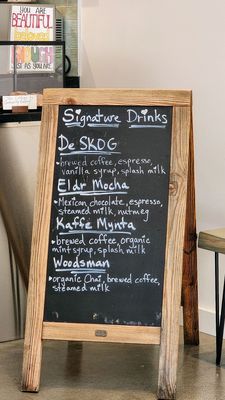 YOU ARE
BEAUTIFUL
JUST AS
YOU ARE
Signature Drinks
De SKOG
•brewed coffee, espresso,
vanilla syrup, splash milk
Eldr Mocha
•Mexican chocolate, espresso,
steamed milk, nutmeg
Kaffe Mynta
•brewed coffee, organic
mint syrup, splash milk
Woodsman
•organic Chai, brewed coffee,
steamed milk